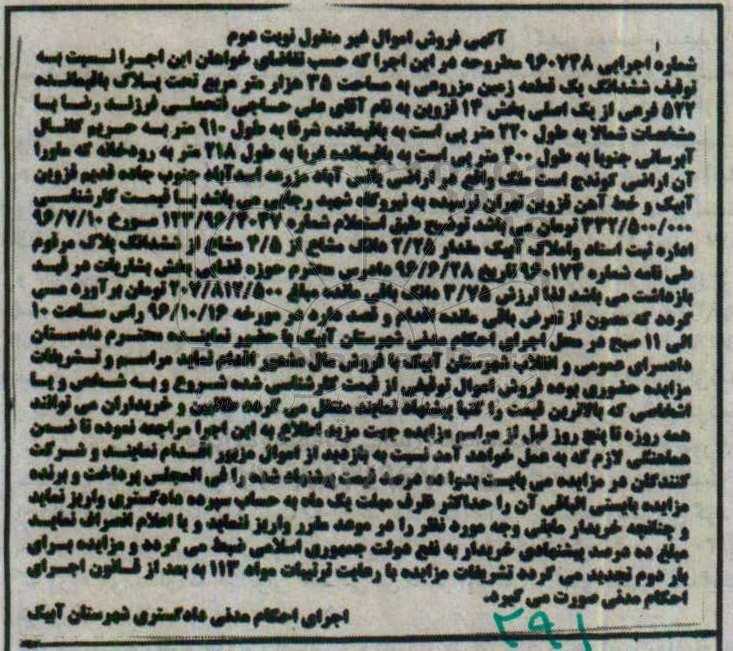 آگهی فروش اموال غیر منقول نوبت دوم
شماره اجرایی ۹۶۰۷۳۸ مطروحه در این اجرا که حسب تقاضای خواهان این اجرا نسبت به
توقیف ششدانگ یک قطعه زمین مزروعی به مساحت ۳۵ هزار متر مربع تحت پلاک باقیمانده
۵۲۲ فرعی از یک اصلی بخش ۱۳ قزوین به نام آقای علی حساجی فتحعلی فرزند رضا با
مشخصات شمالا به طول ۲۲۰ متر پی است به باقیمانده شرقا به طول ۹۱۰ متر به حریم کانال
آبرسانی جنوبا به طول ۴۰۰ متر پی است به باقیمانده غربا به طول ۲۱۸ متر به رودخانه که ماورا
آن اراضی کوندج است ملک واقع در اراضی یانس آباد مزرعه اسدآباد جنوب جاده قدیم قزوین
آبیک و خط آهن قزوین تهران نرسیده به نیروگاه شهید رجایی می باشد با قیمت کارشناسی
۳۳۲/۵۰۰/۰۰۰ تومان می باشد توضیح طبق استعلام شماره ۱۲۲/۹۶/۳۰۳۷ مورخ ۹۶/۷/۱۰
اداره ثبت اسناد واملاک آبیک مقدار ۲/۲۵ دانگ مشاع از ۴/۵ مشاع از ششدانگ پلاک مرقوم
طی نامه شماره ۹۶۰۱۷۴ تاریخ ۹۶/۶/۲۸ دادرس محترم حوزه قضایی بخش بشاریات در قید
بازداشت می باشد لذا ارزش ۳/۷۵ دانگ باقی مانده مبلغ ۲۰۷/۸۱۲/۵۰۰ تومان برآورد می
گردد که مصون از تعرض باقی مانده اقدام و قصد دارد در مورخه ۹۶/۱۰/۱۶ راس ساعت ۱۰
الی ۱۱ صبح در محل اجرای احکام مدنی شهرستان آبیک با حضور نماینده محترم دادستان
دادسرای عمومی و انقلاب شهرستان آبیک با فروش مال مذکور اقدام نماید مراسم و تشریفات
مزایده حضوری بوده فروش اموال توقیفی از قیمت کارشناسی شده شروع و به شخص و یا
اشخاصی که بالاترین قیمت را کتبا پیشنهاد نمایند منتقل می گردد طالبین و خریداران می توانند
همه روزه تا پنج روز قبل از مراسم مزایده جهت مزید اطلاع به این اجرا مراجعه نموده تا ضمن
هماهنگی لازم که به عمل خواهد آمد نسبت به بازدید از اموال مزبور اقدام نمایند و شرکت
کنندگان در مزایده می بایست بدوا ده درصد قیمت پیشنهاد شده را فی المجلس پرداخت و برنده
مزایده بایستی الباقی آن را حداکثر ظرف مهلت یک ماه به حساب سپرده دادگستری واریز نماید
و چنانچه خریدار مابقی وجه مورد نظر را در موعد مقرر واریز ننماید و یا اعلام انصراف نماید
مبلغ ده درصد پیشنهادی خریدار به نفع دولت جمهوری اسلامی ضبط می گردد و مزایده برای
بار دوم تجدید می گردد تشریفات مزایده با رعایت ترتیبات مواد ۱۱۳ به بعد از قانون اجرای
احکام مدنی صورت می گیرد.
اجرای احکام مدنی دادگستری شهرستان آبیک
۲۹۱